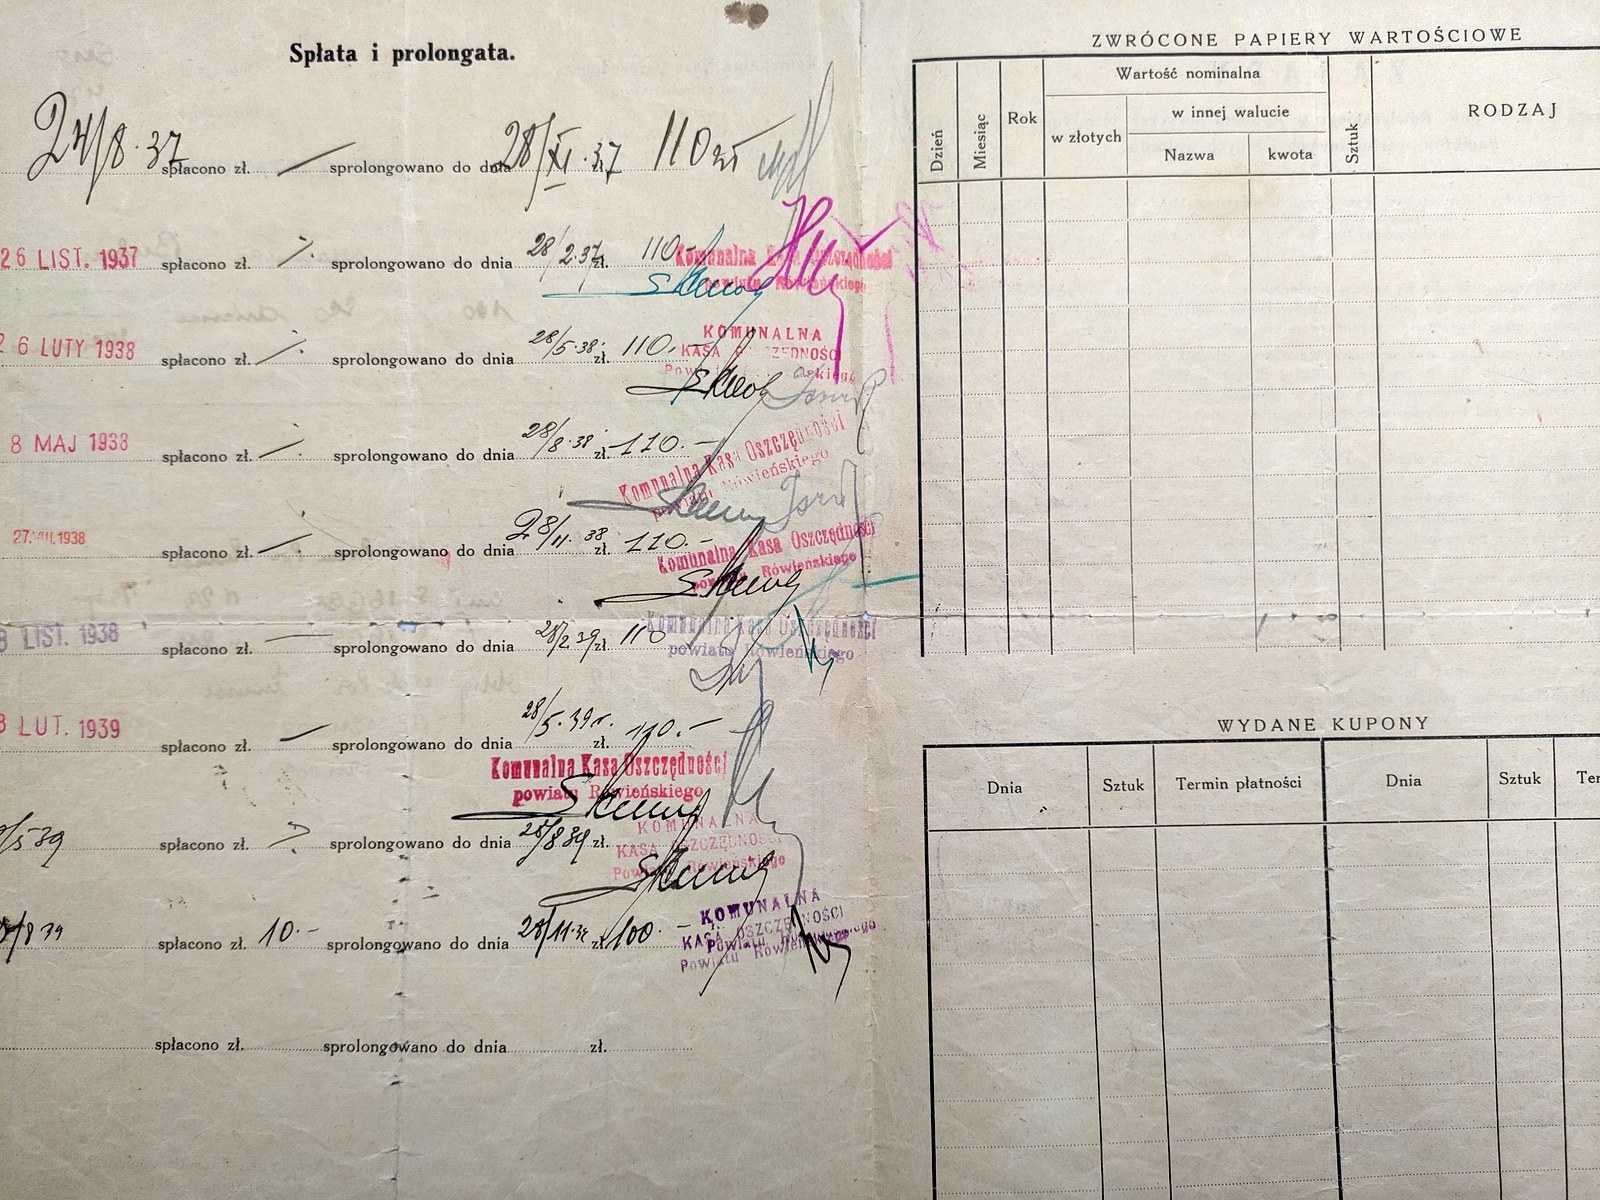 Spłata i prolongata.
24/8·37 spłacono zł. — sprolongowano do dnia 28/XI·37 zł. 110 zł
26 LIST. 1937 spłacono zł. sprolongowano do dnia 28/2·37 zł. 110-
Komunalna Kasa Oszczędności
powiatu Rówieńskiego
26 LUTY 1938 spłacono zł. sprolongowano do dnia 28/5·38· zł. 110.-
KOMUNALNA
KASA OSZCZĘDNOŚCI
Powiatu
8 MAJ 1938 spłacono zł. sprolongowano do dnia 28/8·38 zł. 110.-
Komunalna Kasa Oszczędności
powiatu Rówieńskiego
27. VIII. 1938 spłacono zł. — sprolongowano do dnia 28/11·38 zł. 110.-
Komunalna Kasa Oszczędności
powiatu Rówieńskiego
8 LIST. 1938 spłacono zł. — sprolongowano do dnia 28/2.39 zł. 110
Komunalna Kasa Oszczędności
powiatu Rówieńskiego
8 LUT. 1939 spłacono zł. — sprolongowano do dnia 28/5·39r. zł. 110.-
Komunalna Kasa Oszczędności
powiatu Rówieńskiego
/5 39 spłacono zł. sprolongowano do dnia 28/8 39 zł.
KOMUNALNA
KASA OSZCZĘDNOŚCI
Powiatu Rówieńskiego
/8 39 spłacono zł. 10.- sprolongowano do dnia 28/11·39 zł. 100.-
KOMUNALNA
KASA OSZCZĘDNOŚCI
Powiatu Rówieńskiego
spłacono zł. sprolongowano do dnia zł.
ZWRÓCONE PAPIERY WARTOŚCIOWE
Dzień Miesiąc Rok Wartość nominalna Sztuk RODZAJ
w złotych w innej walucie
Nazwa kwota
WYDANE KUPONY
Dnia Sztuk Termin płatności Dnia Sztuk Ter